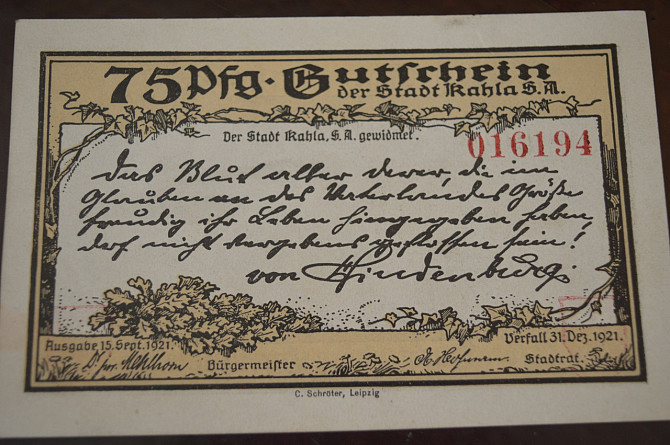 75 Pfg. Gutschein
der Stadt Kahla S.A.
Der Stadt Kahla, S.A. gewidmet.
016194
Das Blut aller derer, die im
Glauben an des Vaterlandes Größe
freudig ihr Leben hingegeben haben,
darf nicht vergebens geflossen sein!
von Hindenburg.
Ausgabe 15. Sept. 1921.
Verfall 31. Dez. 1921.
Bürgermeister
Stadtrat.
C. Schröter, Leipzig